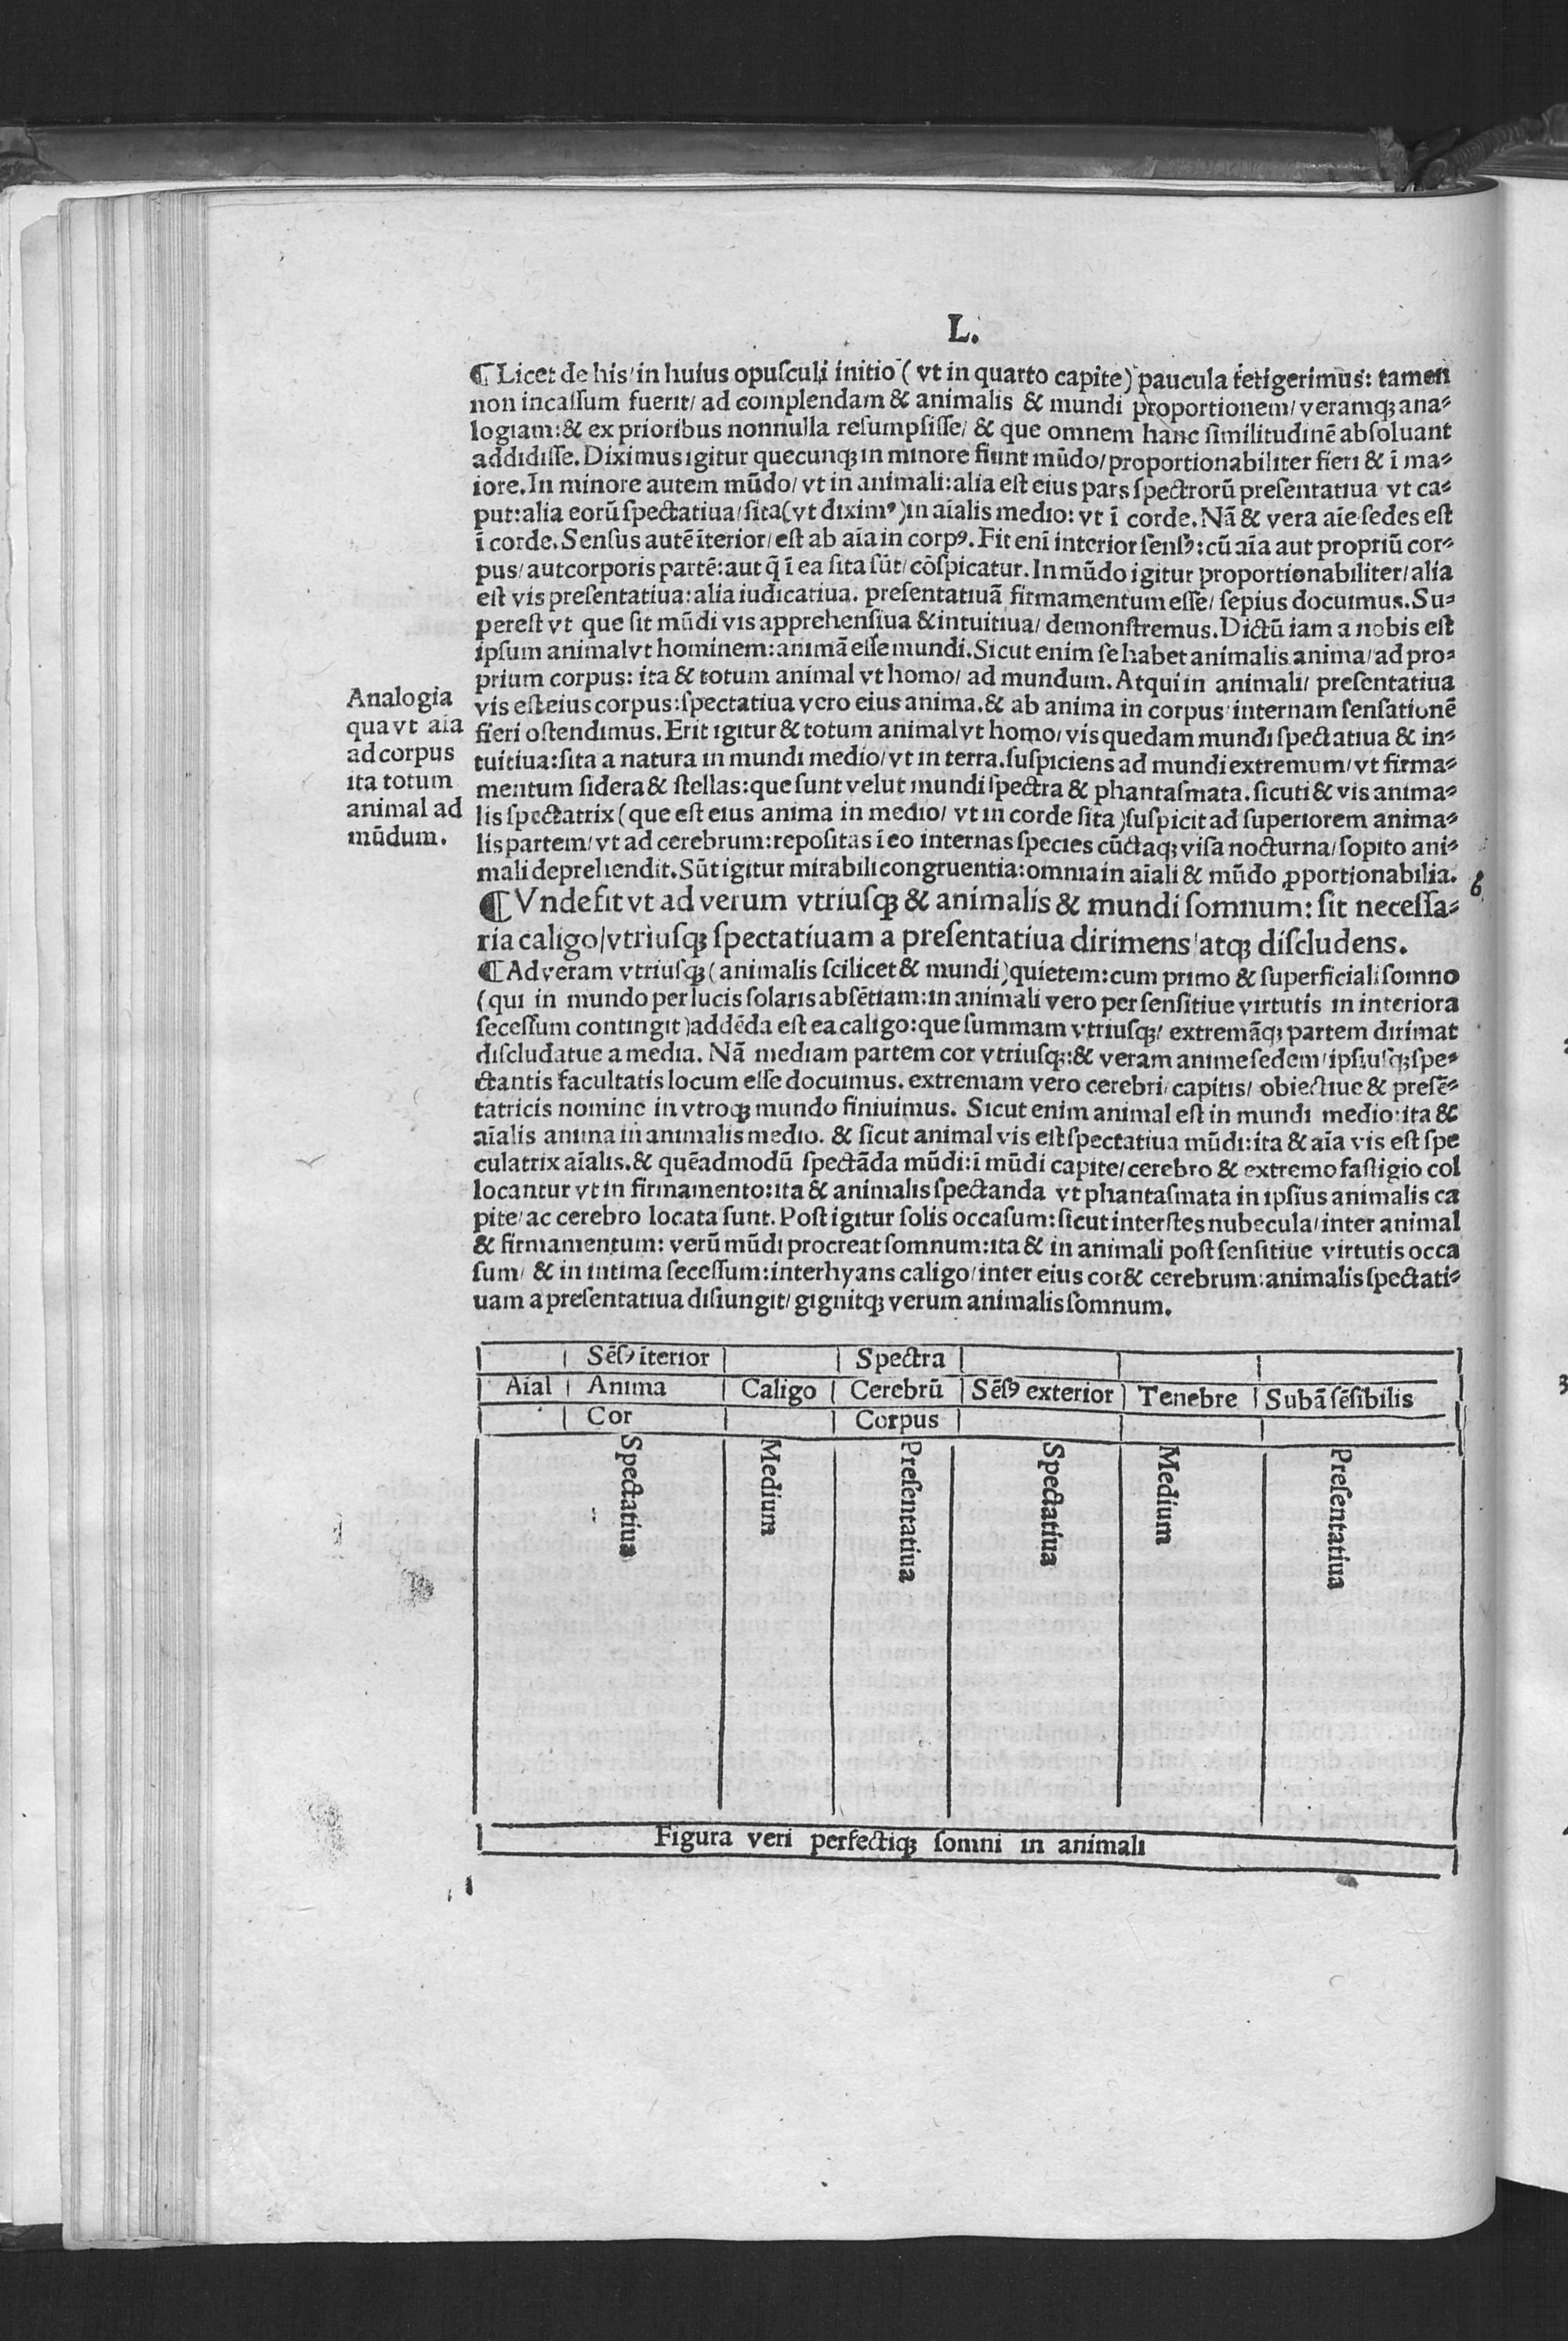 L.
¶ Licet de his/ in huius opusculi initio (vt in quarto capite) paucula tetigerimus: tamen
non incassum fuerit/ ad complendam & animalis & mundi proportionem/ veramqꝫ ana⸗
logiam: & ex prioribus nonnulla resumpsisse/ & que omnem hanc similitudinē absoluant
addidisse. Diximus igitur quecunqꝫ in minore fiunt mūdo/ proportionabiliter fieri & ī ma⸗
iore. In minore autem mūdo/ vt in animali: alia est eius pars spectrorū presentatiua vt ca⸗
put: alia eorū spectatiua/ sita (vt diximꝰ) in aīalis medio: vt ī corde. Nā & vera aīe sedes est
ī corde. Sensus autē īterior/ est ab aīa in corpꝰ. Fit enī interior sensꝰ: cū aīa aut propriū cor⸗
pus/ aut corporis partē: aut q̄ ī ea sita sūt/ cōspicatur. In mūdo igitur proportionabiliter/ alia
est vis presentatiua: alia iudicatiua. presentatiuā firmamentum esse/ sepius docuimus. Su⸗
perest vt que sit mūdi vis apprehensiua & intuitiua/ demonstremus. Dictū iam a nobis est
ipsum animal vt hominem: animā esse mundi. Sicut enim se habet animalis anima/ ad pro⸗
prium corpus: ita & totum animal vt homo/ ad mundum. Atqui in animali/ presentatiua
vis est eius corpus: spectatiua vero eius anima. & ab anima in corpus internam sensationē
fieri ostendimus. Erit igitur & totum animal vt homo/ vis quedam mundi spectatiua & in⸗
tuitiua: sita a natura in mundi medio/ vt in terra. suspiciens ad mundi extremum/ vt firma⸗
mentum sidera & stellas: que sunt velut mundi spectra & phantasmata. sicuti & vis anima⸗
lis spectatrix (que est eius anima in medio/ vt in corde sita) suspicit ad superiorem anima⸗
lis partem/ vt ad cerebrum: repositas ī eo internas species cūctaqꝫ visa nocturna/ sopito ani⸗
mali deprehendit. Sūt igitur mirabili congruentia: omnia in aīali & mūdo ꝓportionabilia.
Analogia
qua vt aīa
ad corpus
ita totum
animal ad
mūdum.
6
¶ Vnde fit vt ad verum vtriusqꝫ & animalis & mundi somnum: sit necessa⸗
ria caligo/ vtriusqꝫ spectatiuam a presentatiua dirimens/ atqꝫ discludens.
¶ Ad veram vtriusqꝫ (animalis scilicet & mundi) quietem: cum primo & superficiali somno
(qui in mundo per lucis solaris absētiam: in animali vero per sensitiue virtutis in interiora
secessum contingit) addēda est ea caligo: que summam vtriusqꝫ/ extremāqꝫ partem dirimat
discludatue a media. Nā mediam partem cor vtriusqꝫ: & veram anime sedem/ ipsiusqꝫ spe⸗
ctantis facultatis locum esse docuimus. extremam vero cerebri/ capitis/ obiectiue & presē⸗
tatricis nomine in vtroqꝫ mundo finiuimus. Sicut enim animal est in mundi medio: ita &
aīalis anima in animalis medio. & sicut animal vis est spectatiua mūdi: ita & aīa vis est spe
culatrix aīalis. & quēadmodū spectāda mūdi: ī mūdi capite/ cerebro & extremo fastigio col
locantur vt in firmamento: ita & animalis spectanda vt phantasmata in ipsius animalis ca
pite/ ac cerebro locata sunt. Post igitur solis occasum: sicut interstes nubecula/ inter animal
& firmamentum: verū mūdi procreat somnum: ita & in animali post sensitiue virtutis occa
sum/ & in intima secessum: interhyans caligo/ inter eius cor & cerebrum: animalis spectati⸗
uam a presentatiua disiungit/ gignitqꝫ verum animalis somnum.
Sēsꝰ īterior Spectra
Aīal Anima Caligo Cerebrū Sēsꝰ exterior Tenebre Subā sēsibilis
Cor Corpus
Spectatiua Medium Presentatiua Spectatiua Medium Presentatiua
Figura veri perfectiqꝫ somni in animali